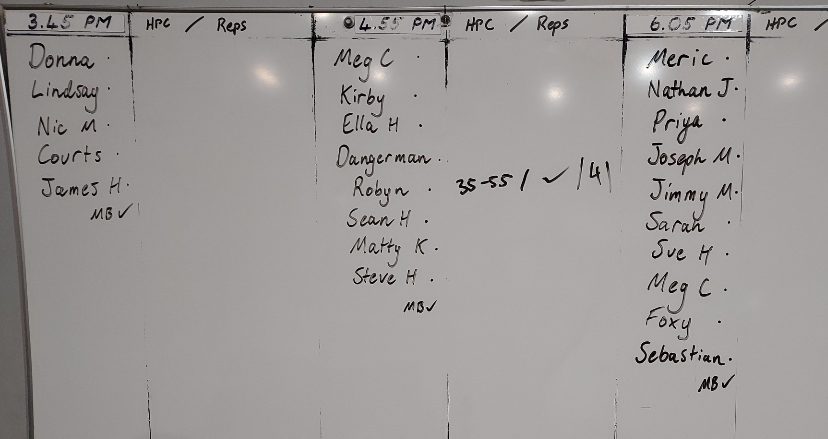 3.45 PM HPC / Reps
Donna .
Lindsay .
Nic M .
Courts .
James H.
MB ✓
4.55 PM HPC / Reps
Meg C .
Kirby .
Ella H .
Dangerman .
Robyn . 35-55 / ✓ / 41
Sean H .
Matty K .
Steve H .
MB ✓
6.05 PM HPC /
Meric .
Nathan J.
Priya .
Joseph M.
Jimmy M.
Sarah .
Sue H .
Meg C .
Foxy .
Sebastian.
MB ✓